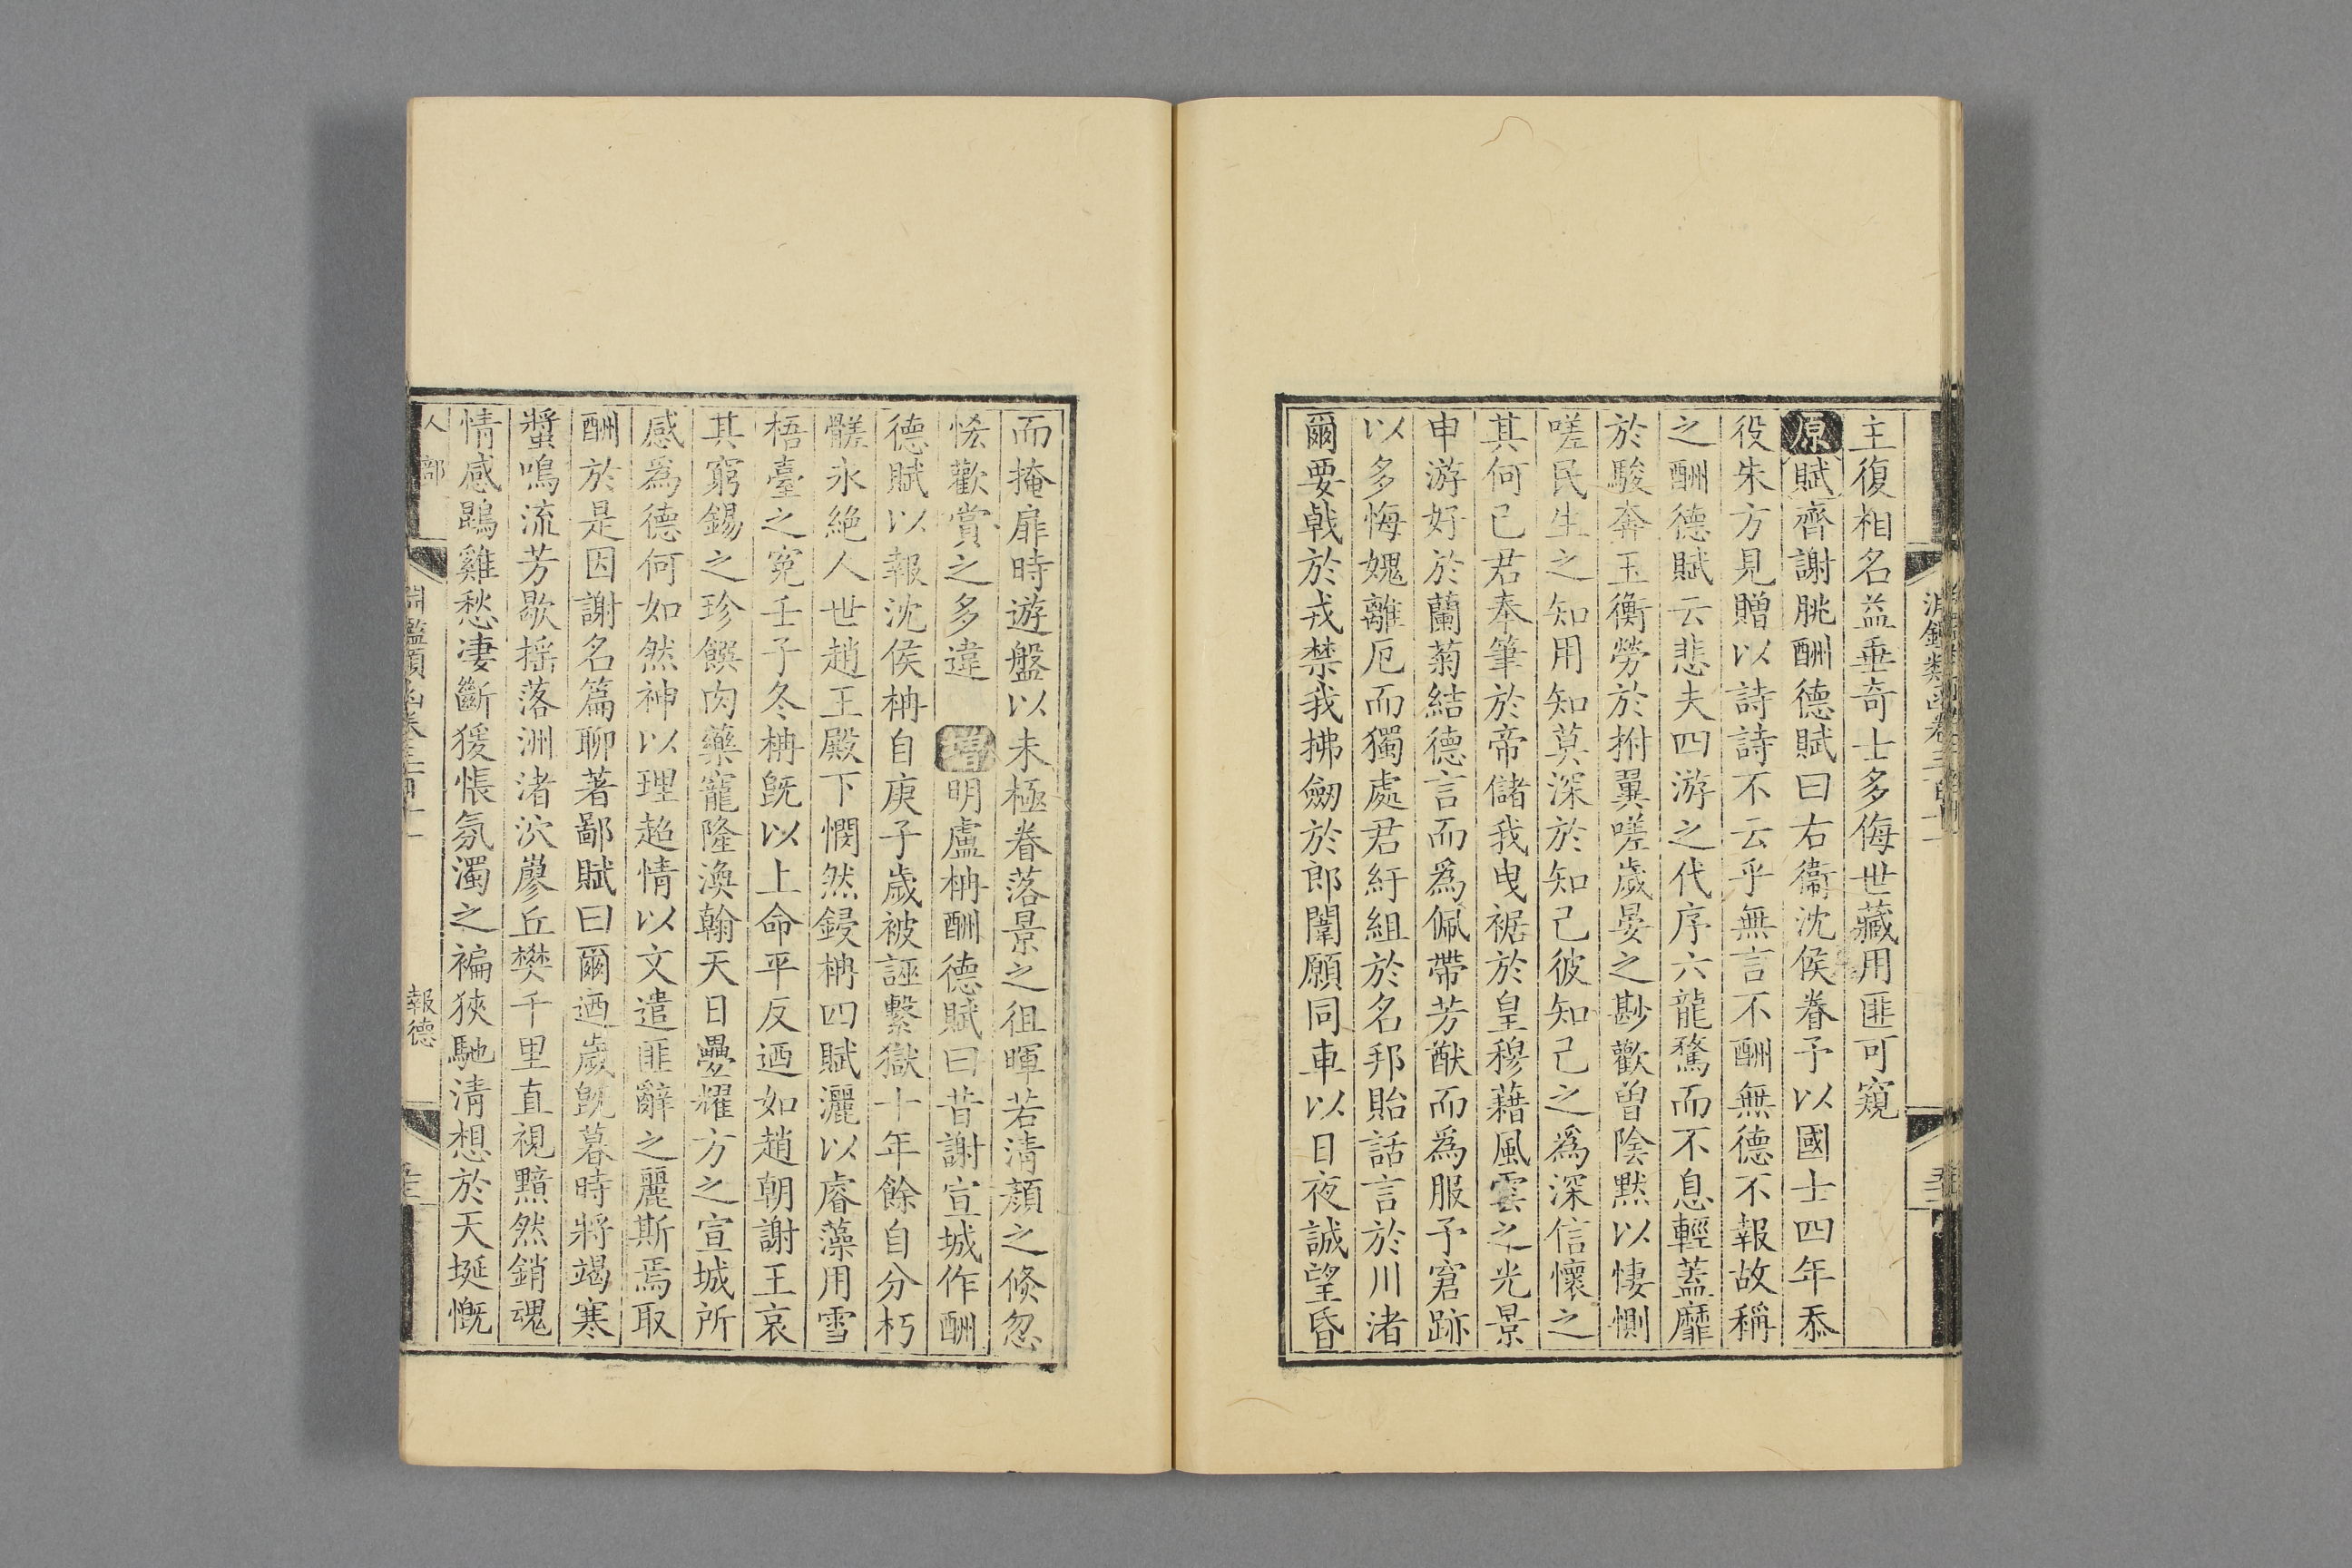 主復相名益垂奇士多侮世藏用匪可窺
原賦齊謝朓酬德賦曰右衞沈侯眷予以國士四年忝
役朱方見贈以詩詩不云乎無言不酬無德不報故稱
之酬德賦云悲夫四游之代序六龍騖而不息輕蓋靡
於駿奔玉衡勞於拊翼嗟歲晏之尠歡曾陰默以悽惻
嗟民生之知用知莫深於知己彼知己之爲深信懷之
其何已君奉筆於帝儲我曳裾於皇穆藉風雲之光景
申游好於蘭菊結德言而爲佩帶芳猷而爲服予窘跡
以多悔媿離厄而獨處君紆組於名邦貽話言於川渚
爾要戟於戎禁我拂劒於郎闈願同車以日夜誠望昏
而掩扉時遊盤以未極眷落景之徂暉若清顏之倐忽
恡歡賞之多違 增明盧柟酬德賦曰昔謝宣城作酬
德賦以報沈侯柟自庚子歲被誣繫獄十年餘自分朽
髊永絶人世趙王殿下憫然鋟柟四賦灑以睿藻用雪
梧臺之寃壬子冬柟旣以上命平反迺如趙朝謝王哀
其窮錫之珍饌肉藥寵隆渙翰天日疊耀方之宣城所
感爲德何如然神以理超情以文遣匪辭之麗斯焉取
酬於是因謝名篇聊著鄙賦曰爾迺歲旣暮時將竭寒
螿鳴流芳歇揺落洲渚泬寥丘樊千里直視黯然銷魂
情感鵾雞愁凄斷猨悵氛濁之褊狹馳清想於天埏慨
人部
報德